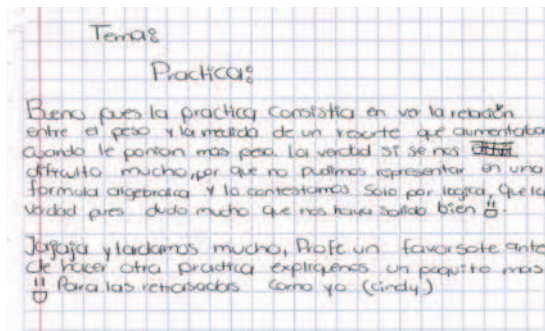 Tema:
Practica:
Bueno pues la practica consistia en ver la relación
entre el peso y la medida de un resorte que aumentaba
cuando le ponian mas peso. La verdad si se nos
dificulto mucho, por que no pudimos representar en una
formula algebraica y la contestamos solo por logica, que la
verdad pues dudo mucho que nos haya salido bien
Jajaja y tardamos mucho, Profe un favorsote ante
de hacer otra practica expliquenos un poquito mas
Para las retrasadas como yo (cindy)